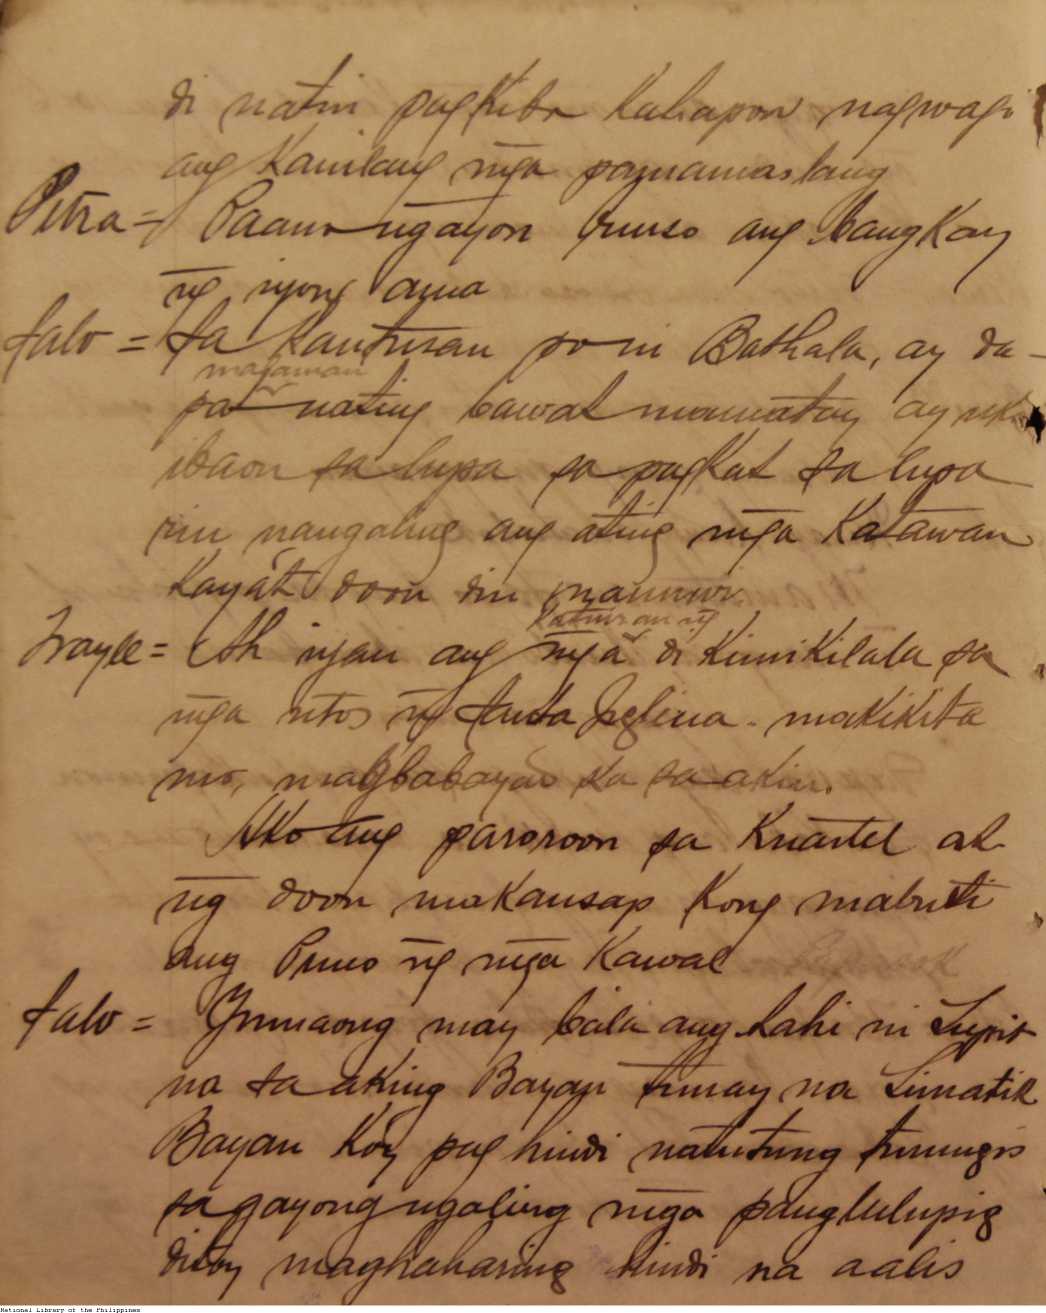 di natin pagkibo kahapon nagwagi
ang kanilang mga pamamaslang
Petra = Paano ngayon Puso ang bangkay
ng inyong ama
Salo = Sa kautusan po ni Bathala, ay da-
maaaman
pat nating bawat mamatay ay
ibaon sa lupa sa pagkat sa lupa
rin nangaling ang ating mga Katawan
Kayát doon din mauuwi.
Katuwiran ng
Frayle = Ah niyan ang mga di Kumikilala sa
mga utos ng Santa Iglecia. makikita
mo, magbabayad ka sa akin.
Ako ang paroroon sa Kuartel at
ng doon makausap kong mabuti
ang Puno ng mga Kawal
Salo = Yumaong may bala ang Lahi ni Lupit
na sa aking Bayan tunay na Limatik
Bayan Koy pag hindi natutung tumangis
sa gayong ngaling mga panglulupig
ditoy maghaharing hindi na aalis
National Library of the Philippines